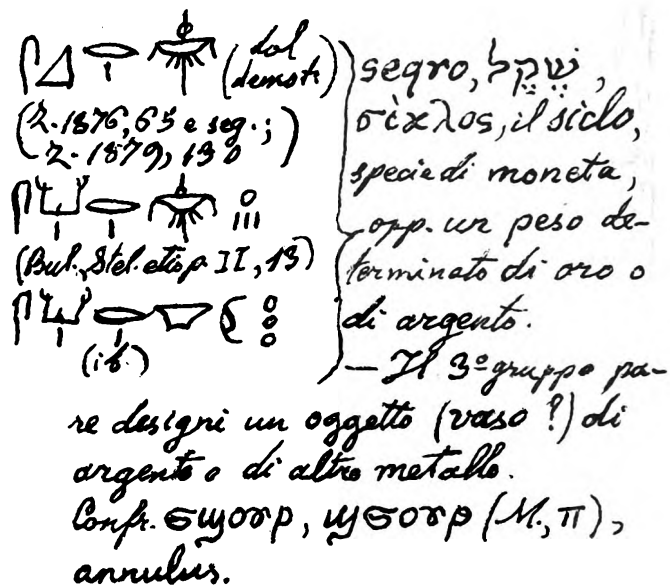 (dal demot.)
(Z. 1876, 65 e seg.;
Z. 1879, 130)
(Bul. Stel. etiop. II, 13)
(ib.)
seqro, שֶׁקֶל,
σίκλος, il siclo,
specie di moneta,
opp. un peso de-
terminato di oro o
di argento.
— Il 3º gruppo pa-
re designi un oggetto (vaso?) di
argento o di altro metallo.
Confr. ϭϣⲟⲩⲣ, ϣϭⲟⲩⲣ (M., π),
annulus.